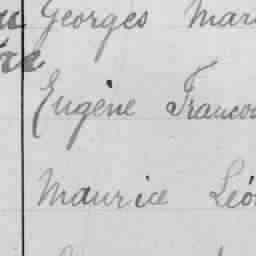 Georges Mar
Eugène Francoi
Maurice Léo